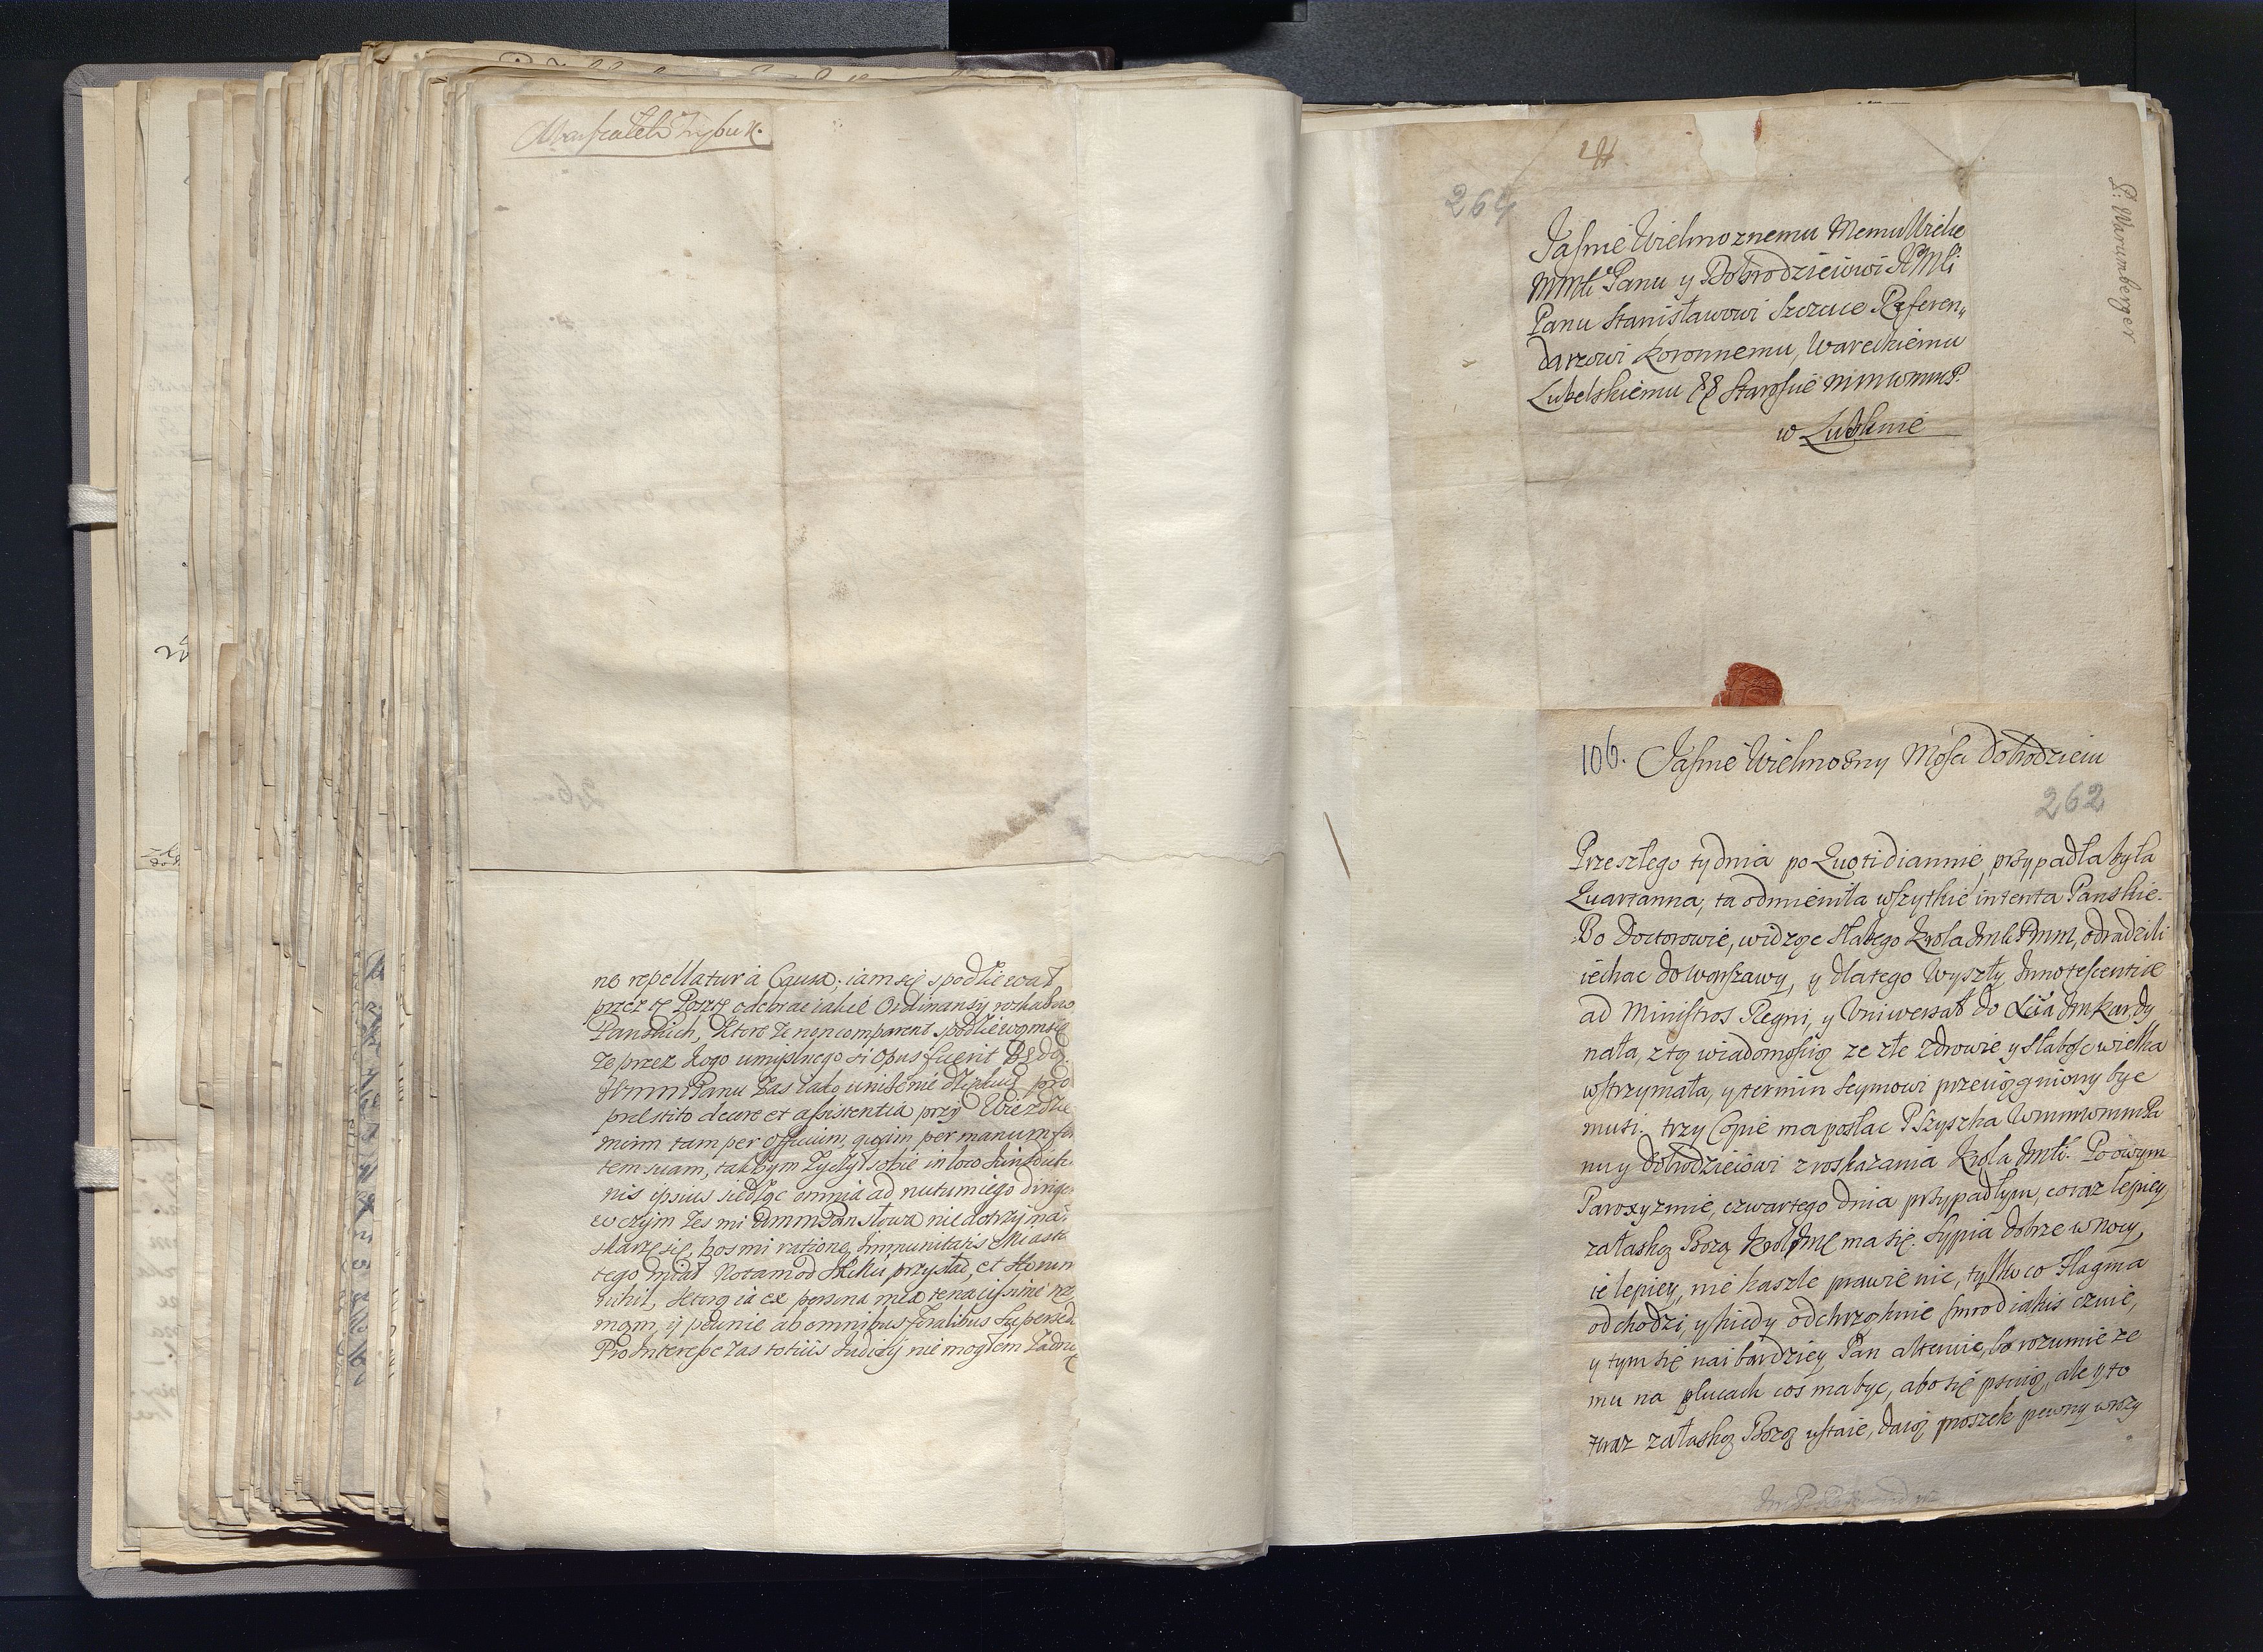 Marszałek Trybun.
ne repellatur à Causa; iam się spodziewał
przez tę Posztę odebrac iakie Ordinansy roskazow
Panskich, ktore że non comparent spodziewam się
że przez kogo umyslnego si opus fuerit
Panu zas iako unizenie dziękuię pro
præstito decore et assistentia przy Wiezdzie
moim tam per Officium, quam per manum for
tem suam, takbym życzył sobie in loco Iurisdictio
nis ipsius siedząc omnia ad nutum iego dirigere
w czym żes mi Pan słowa nie dotrzymał
skarżę się, bos mi ratione Immunitatis Miasta
tego miał Notam od przysłać, et horum
nihil, ktorą ia ex persona mea tenacissime
mam, y pewnie ab omnibus supersed
Pro Interesse zas totius Iudicij nie mogłem żadne
264
Jasnie Wielmoznemu Memu Wielce
MMći Panu y Dobrodzieiowi JeMći
Panu Stanisławowi Szczuce Referen„
darzowi Koronnemu, Wareckiemu
Lubelskiemu && Staroscie mmwmmP.
w Lublinie
P. Warumberger
106. Jasnie Wielmożny Mosci Dobrodzieiu
262
Przeszłego tydnia po Quotidiannie, przypadła była
Quartanna, ta odmieniła wszytkie intenta Panskie.
Bo Doctorowie, widząc słabego Krola JmCi Pmm, odradzili
iechac do Warszawy, y dlatego wyszły Innotescentiæ
ad Ministros Regni, y Uniwersał do Xcia Jm Kardy
nała, z tą wiadomoscią ze złe zdrowie y słabosc wielka
wstrzymała, y termin Seymowi przeciągniony byc
musi. trzy Copie ma posłac P Szyszka WmmwmmPa
nu y Dobrodzieiowi z roskazania Krola JmCi. Po owym
Paroxyzmie, czwartego dnia przypadłym, coraz lepiey
za łaską Bozą Krol Jmć ma się. Sypia dobrze w nocy,
ie lepiey, nie kaszle prawie nic, tylko co flagma
odchodzi, y kiedy odchrząknie smrod iakis czuie,
y tym się naibardziey Pan alteruie, bo rozumie ze
mu na płucach cos ma byc, abo się psuią, ale y to
teraz za łaską Bozą ustaie, daią proszek pewny wrozy